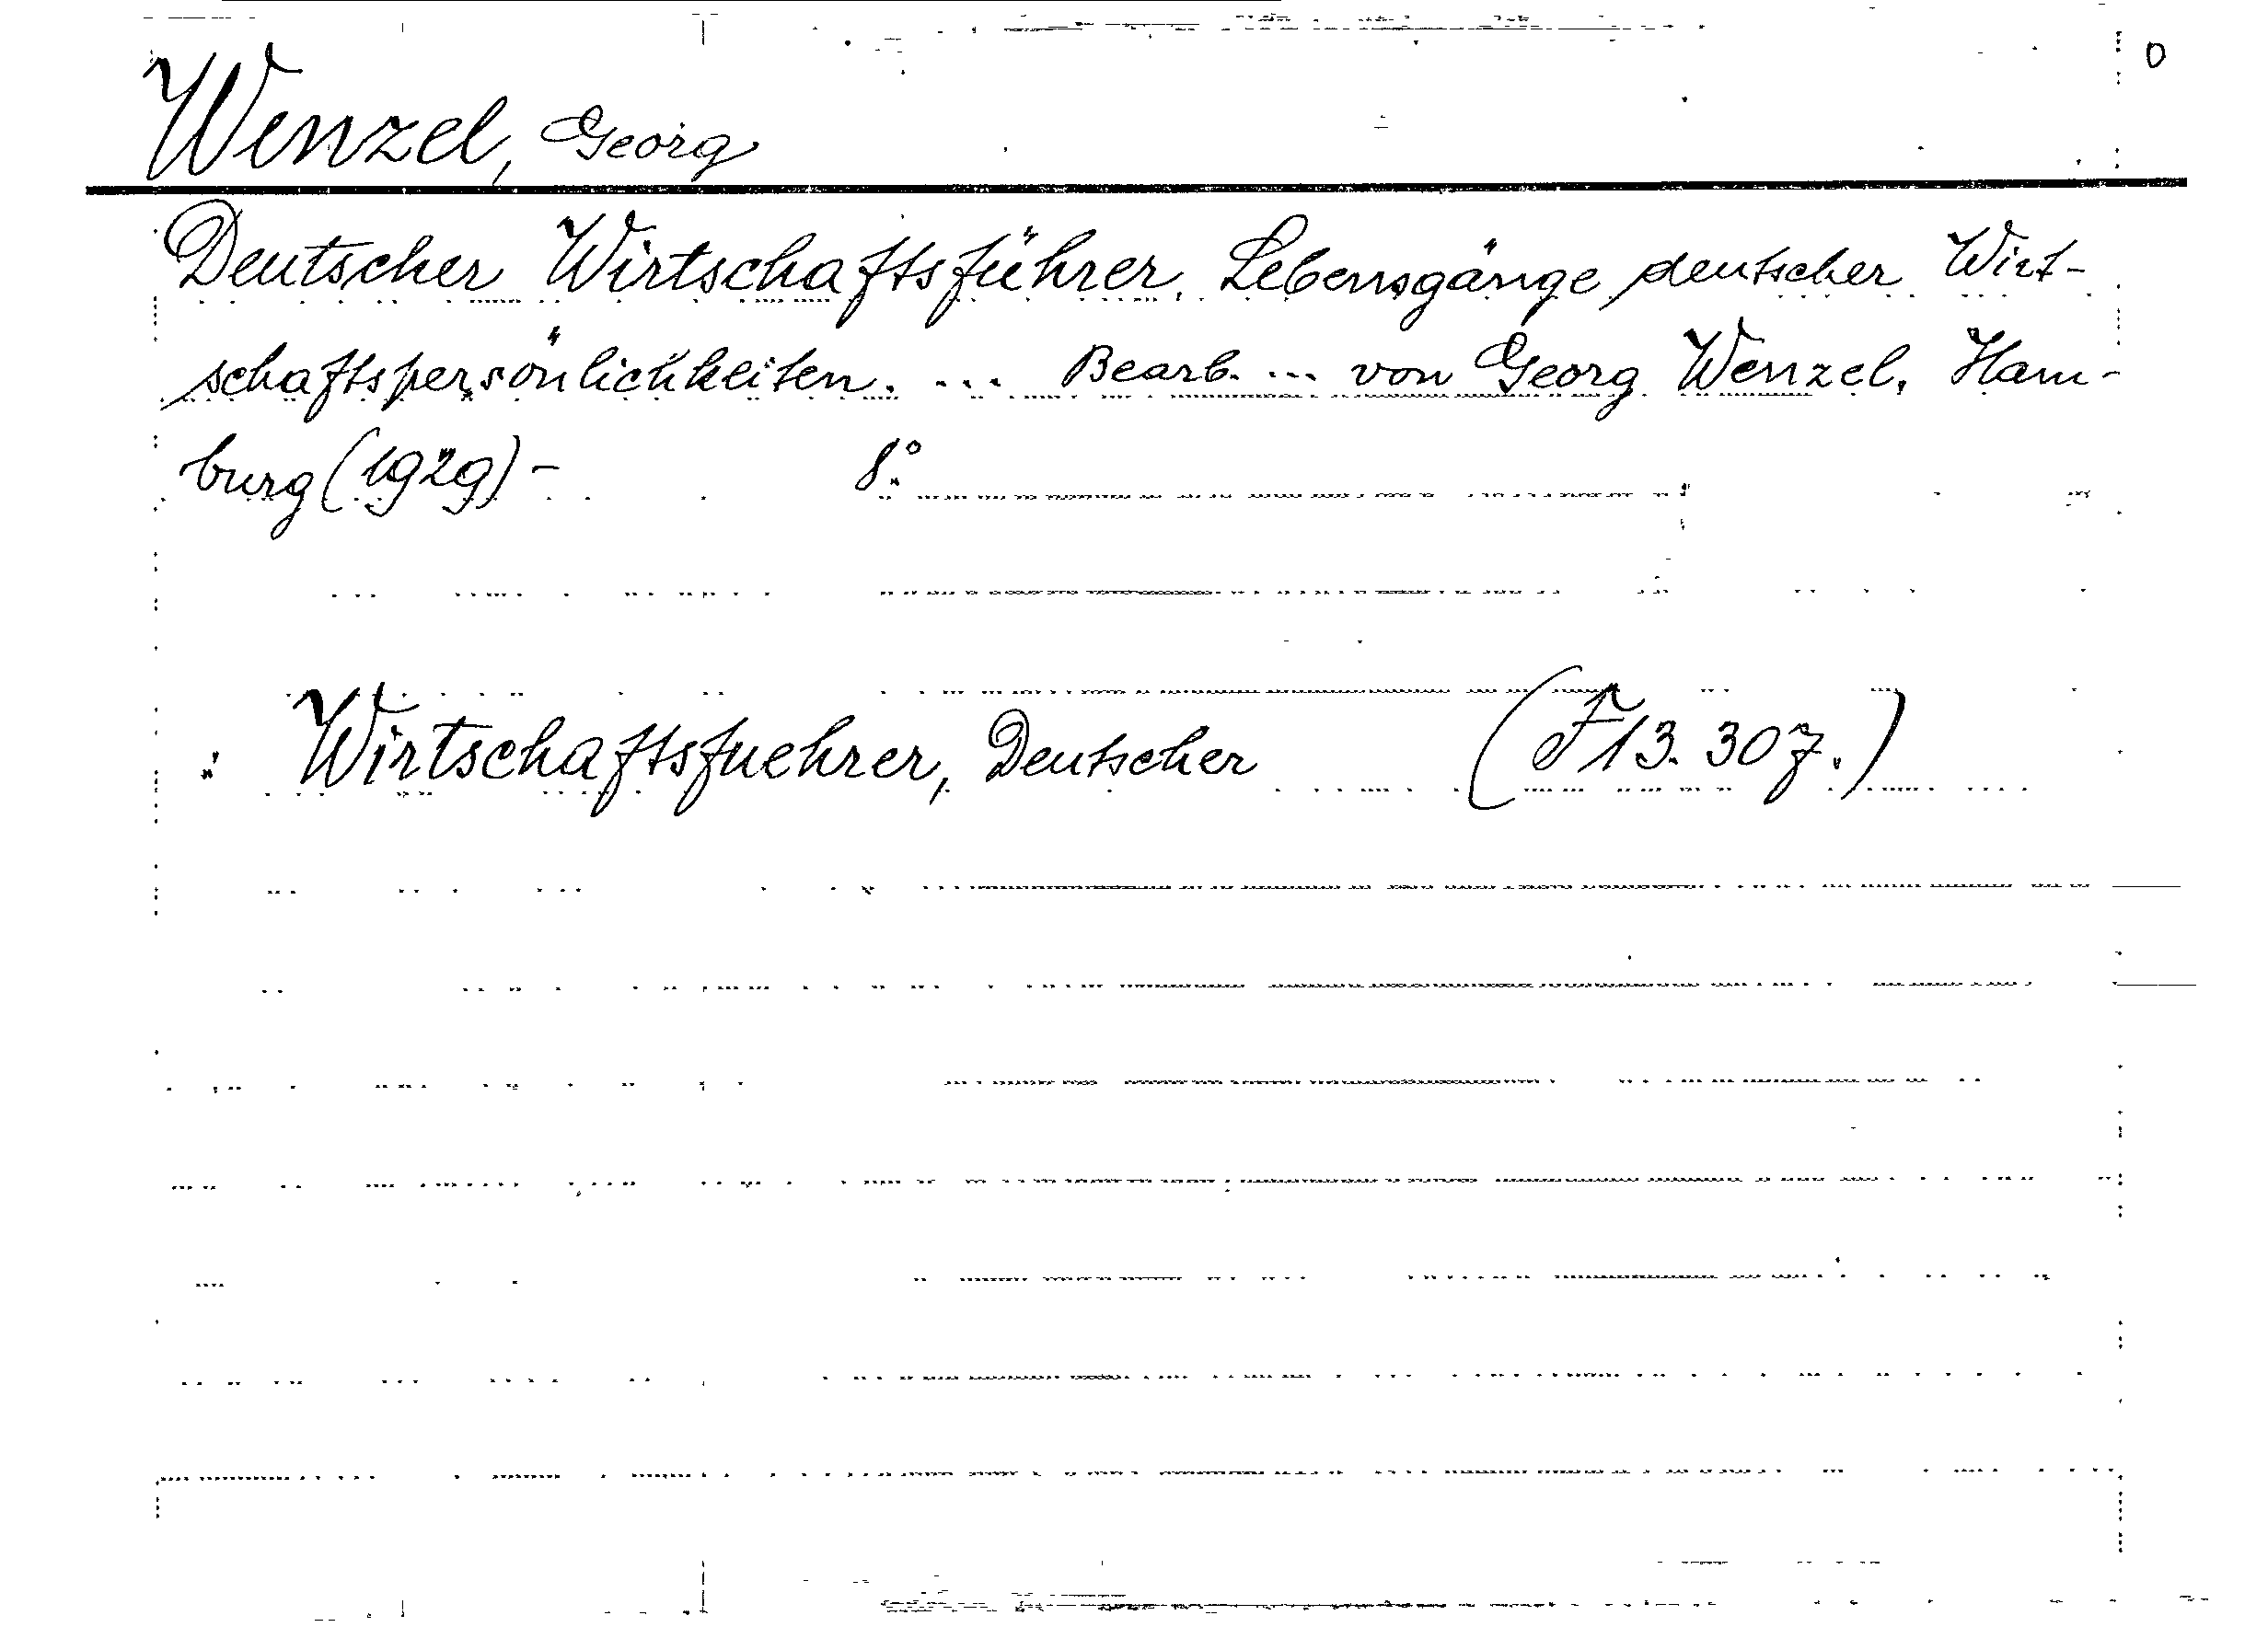 0
Wenzel, Georg
Deutscher Wirtschaftsführer. Lebensgänge deutscher Wirt-
schaftspersönlichkeiten. ... Bearb. ... von Georg Wenzel. Ham-
burg (1929) - 8°.
Wirtschaftsfuehrer, Deutscher (F13. 307.)